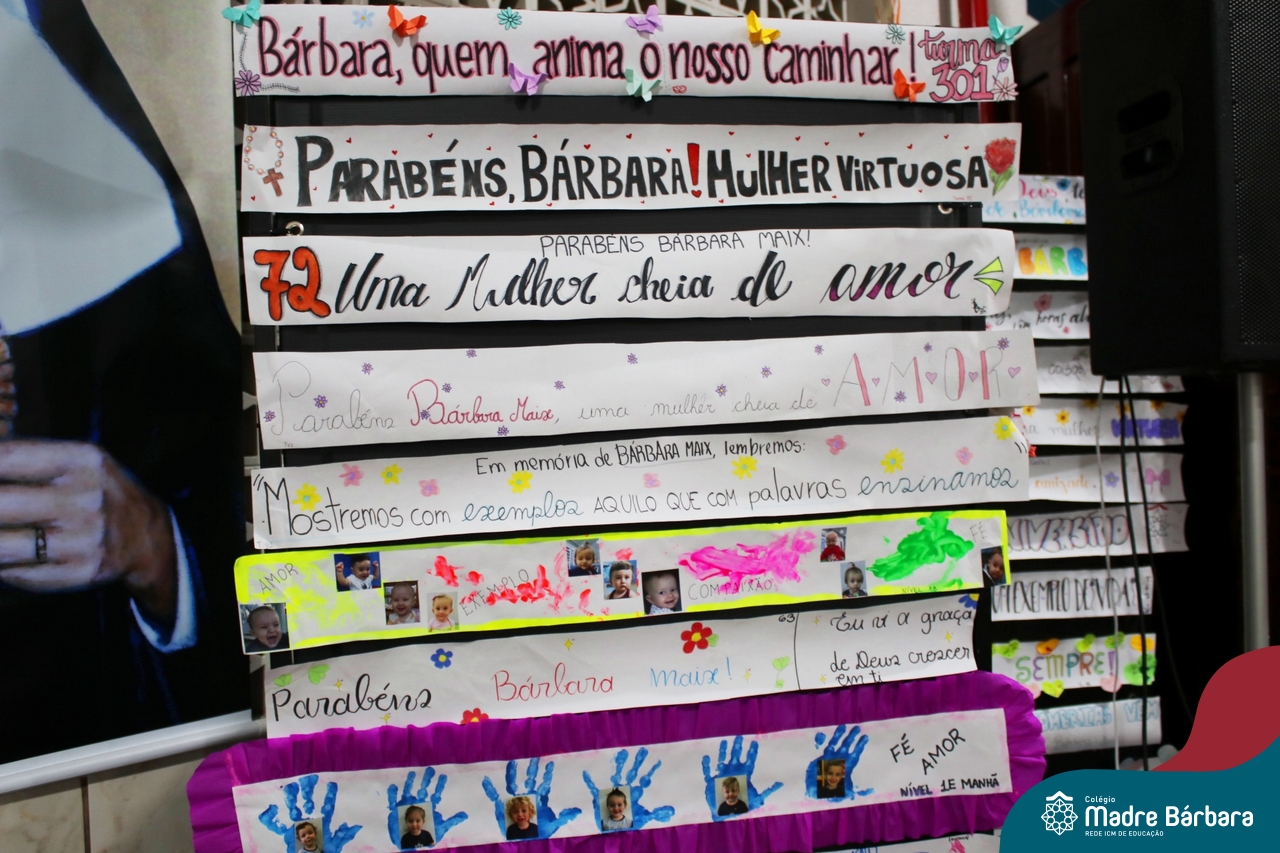 Bárbara, quem anima o nosso caminhar!
turma
301
PARABÉNS, BÁRBARA! MULHER VIRTUOSA
PARABÉNS BÁRBARA MAIX!
72 Uma Mulher cheia de amor
Parabéns Bárbara Maix, uma mulher cheia de AMOR
Em memória de BÁRBARA MAIX, lembremos:
"Mostremos com exemplos AQUILO QUE COM palavras ensinamos"
AMOR
EXEMPLO
COMPAIXÃO
FÉ
NÍVEL
Parabéns Bárbara Maix!
63
Eu vi a graça
de Deus crescer
em ti
FÉ
AMOR
NÍVEL 1E MANHÃ
Deus
BÁRB
mulher
amizade.
EXEMPLO DE VIDA!
SEMPRE!
Colégio
Madre Bárbara
REDE ICM DE EDUCAÇÃO